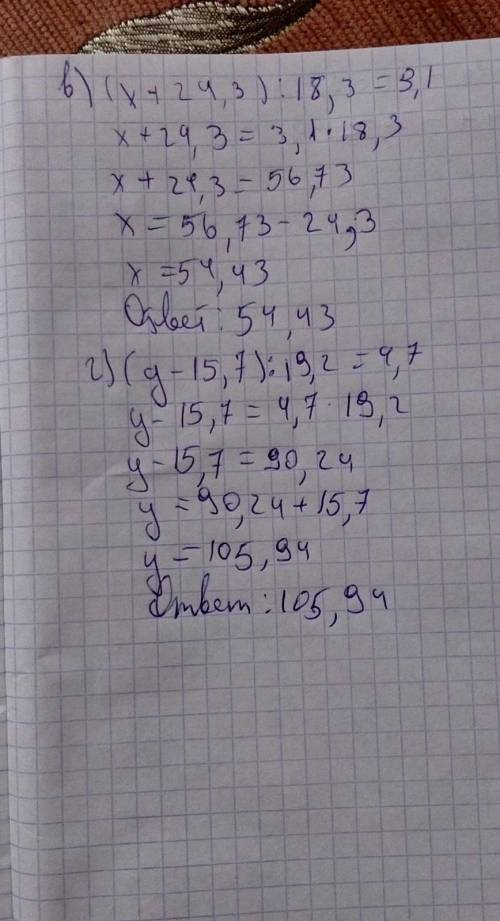 в) (x + 24,3) : 18,3 = 3,1
x + 24,3 = 3,1 · 18,3
x + 24,3 = 56,73
x = 56,73 - 24,3
x = 54,43
Ответ: 54,43
г) (y - 15,7) : 19,2 = 4,7
y - 15,7 = 4,7 · 19,2
y - 15,7 = 90,24
y = 90,24 + 15,7
y = 105,94
Ответ: 105,94